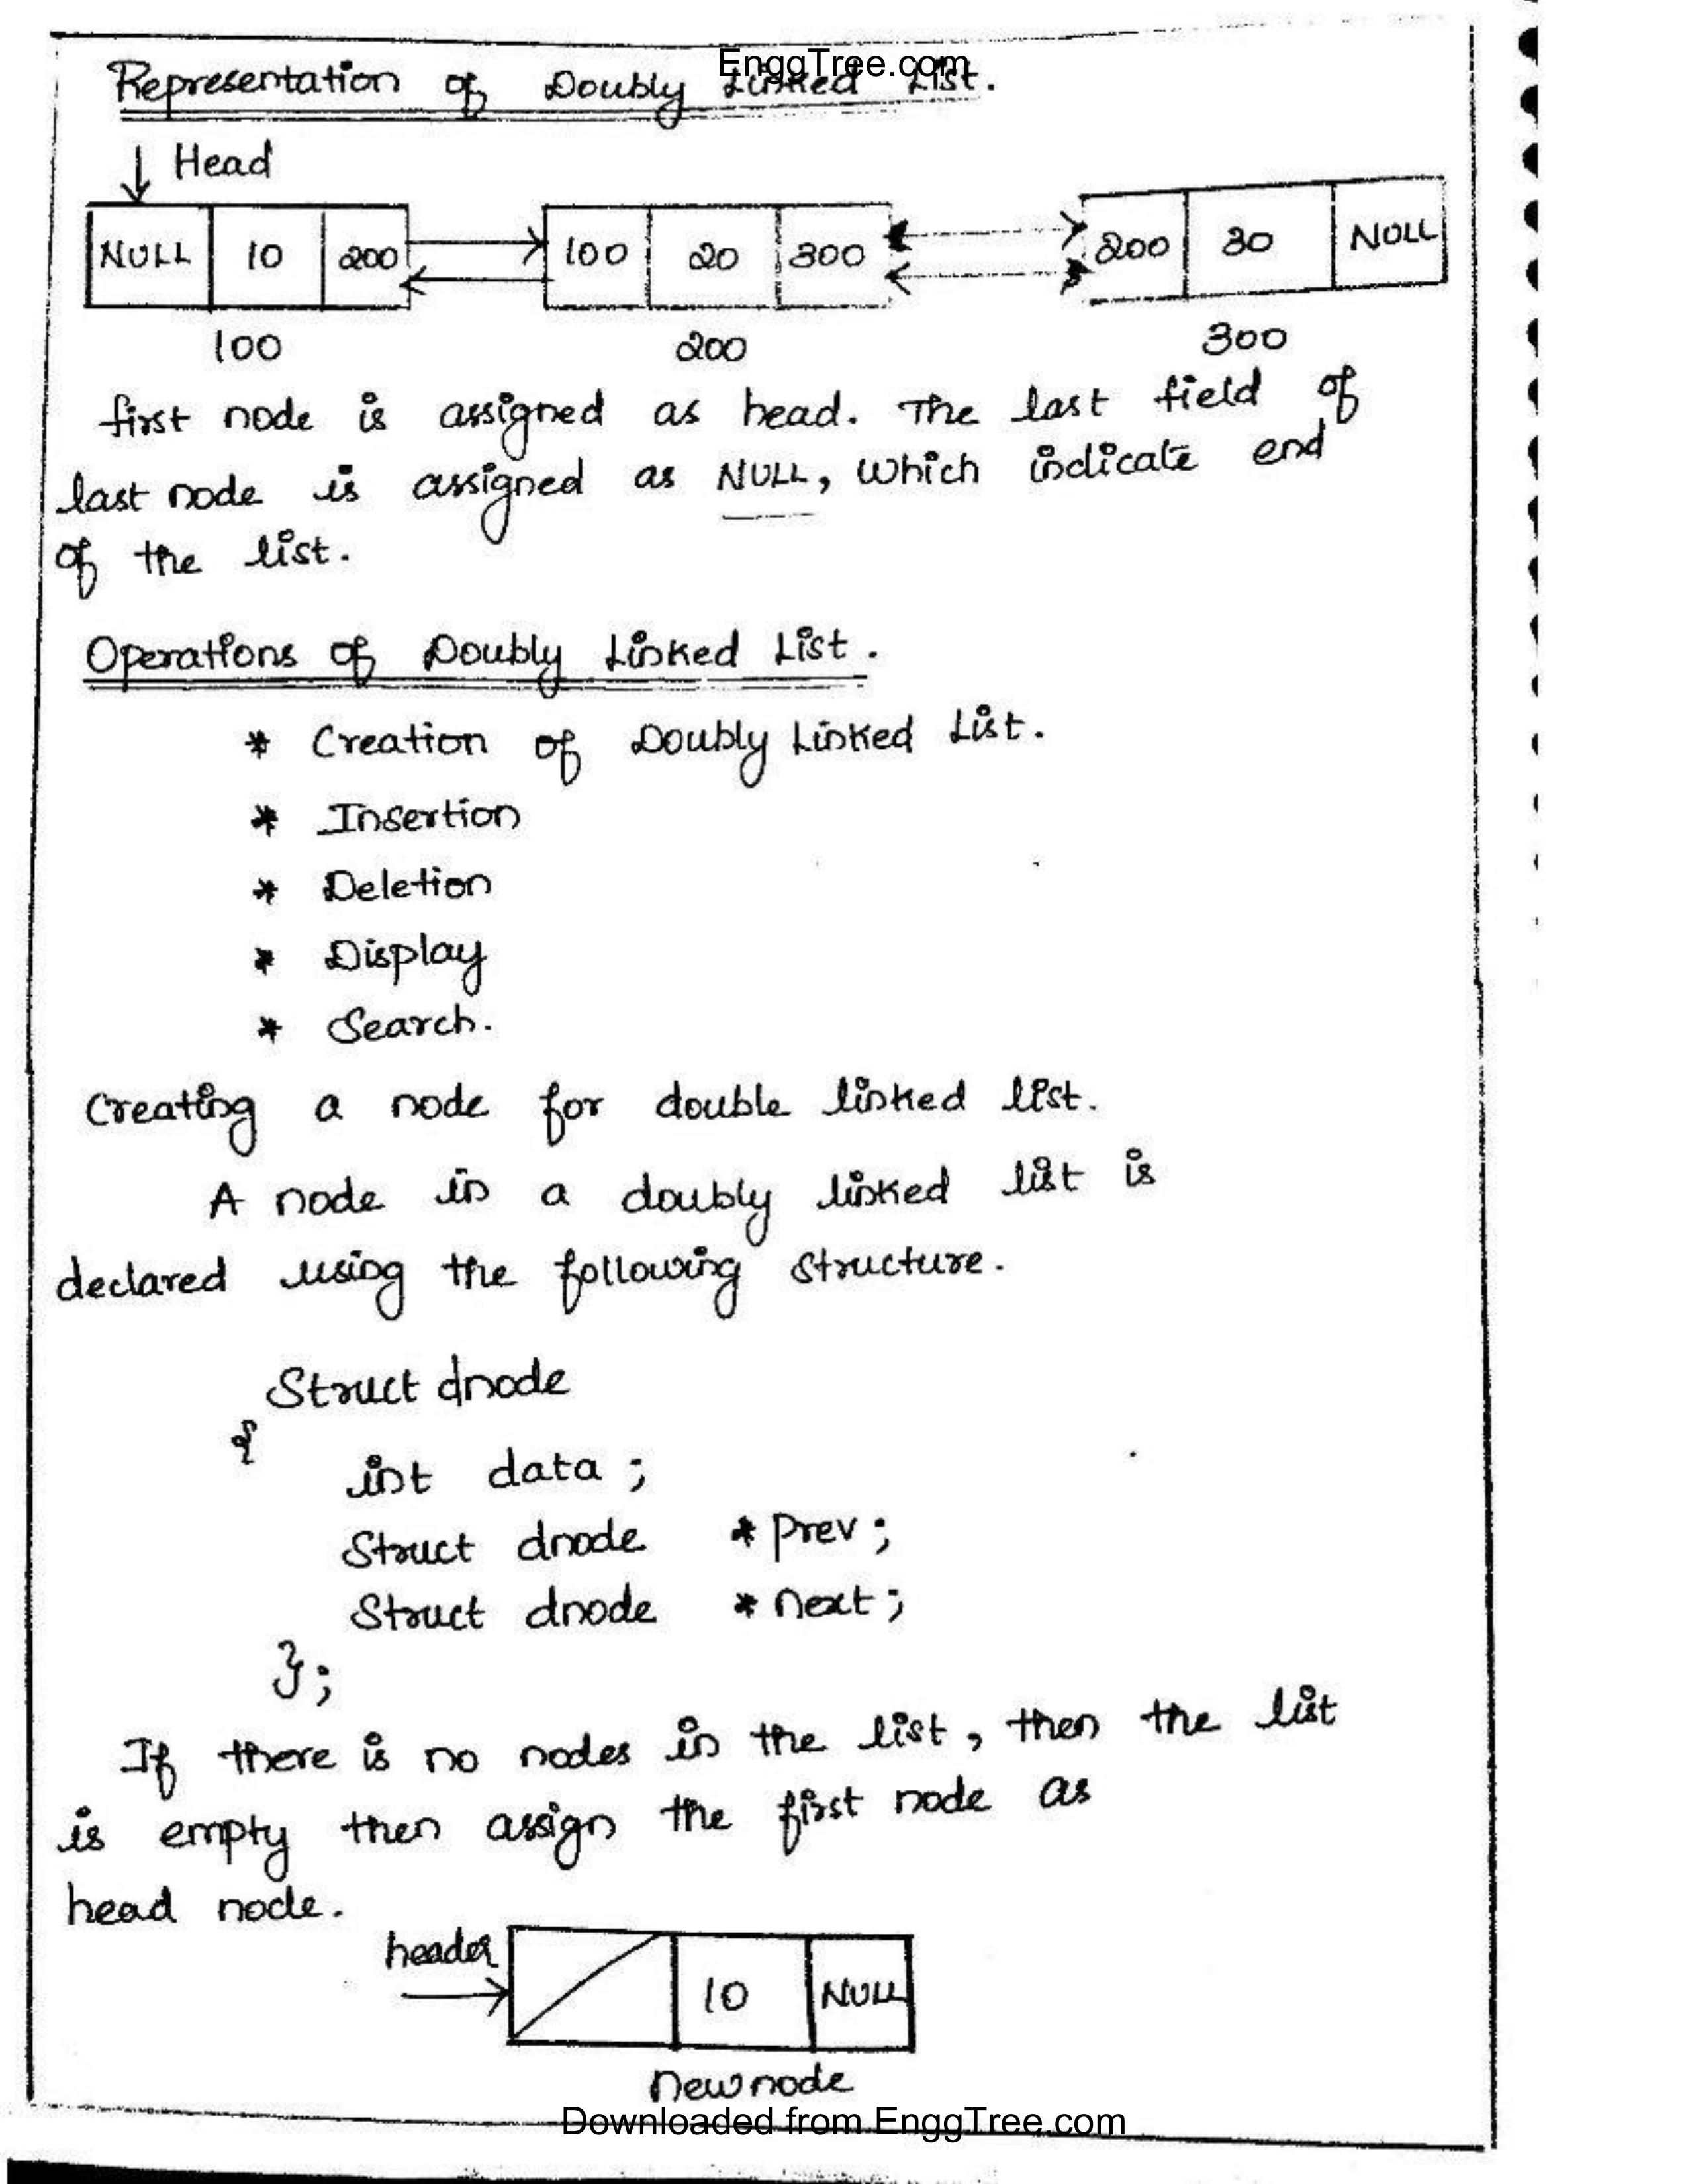 EnggTree.com
Representation of Doubly Linked List.
Head
NULL 10 200 100 20 300 200 30 NULL
100 200 300
first node is assigned as head. The last field of
last node is assigned as NULL, which indicate end
of the list.
Operations of Doubly Linked List.
* Creation of Doubly Linked List.
* Insertion
* Deletion
* Display
* Search.
Creating a node for double linked list.
A node in a doubly linked list is
declared using the following structure.
Struct dnode
{
int data ;
Struct dnode * prev ;
Struct dnode * next ;
} ;
If there is no nodes in the list, then the list
is empty then assign the first node as
head node.
header
10 NULL
New node
Downloaded from EnggTree.com